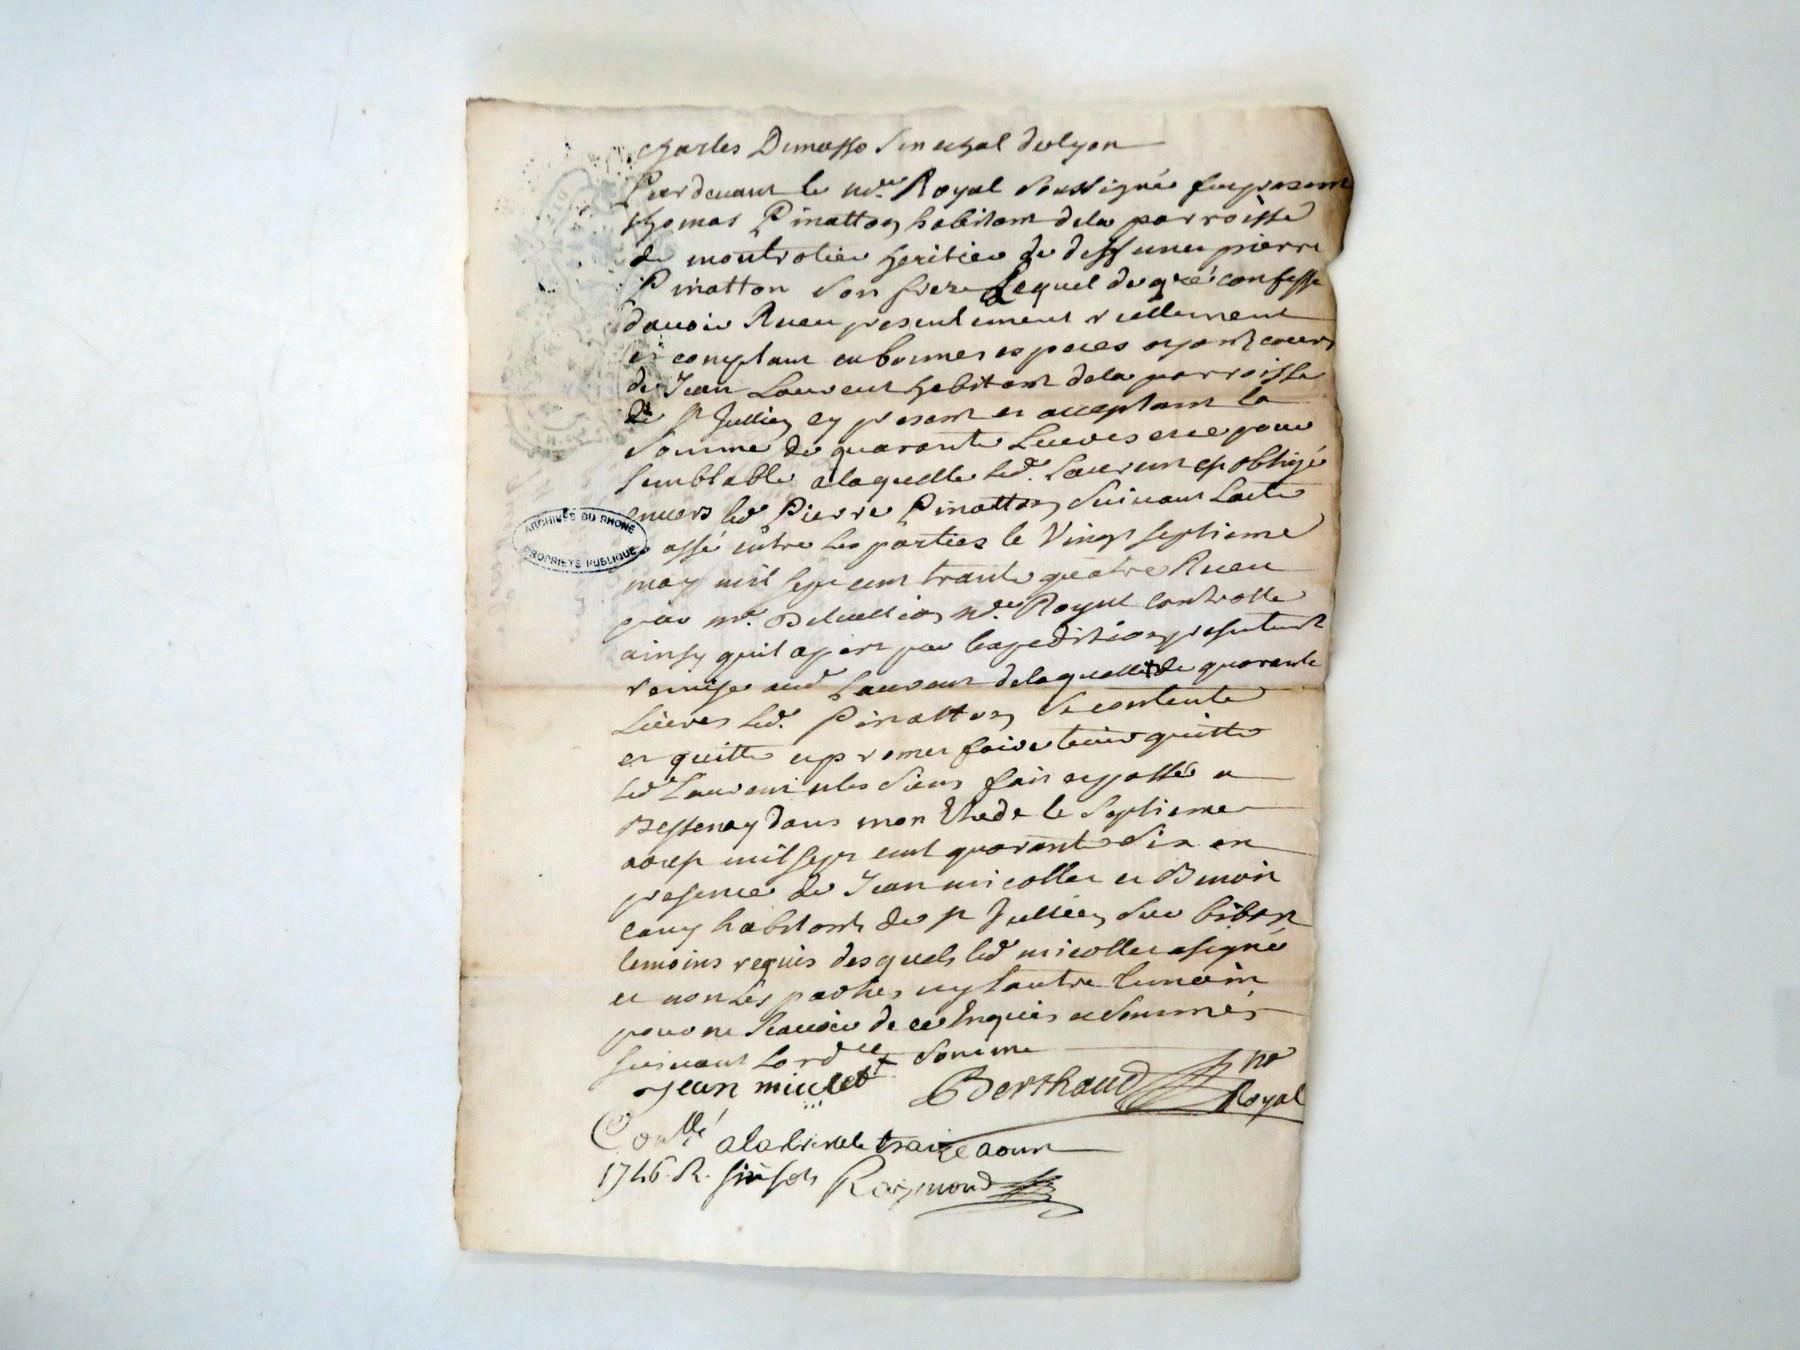 Charles Dumasso Senechal de Lyon
Pardevant le no.re Royal soussigné fus present
thomas Pinatton habitant de la parroisse
de montrotier heritier de deffunct pierre
Pinatton son frere Lequel de gré confesse
davoir Receu presentement reellement
et comptant en bonnes especes ayant cours
de Jean Laurent habitant de la parroisse
de st Jullien cy present et acceptant la
somme de quarante Livres et ce pour
semblable a laquelle led. Laurent est obligé
envers led. Pierre Pinatton suivant Lacte
passé entre les parties le Vingt septieme
may mil sept cent trante quatre Receu
par me. no.re Royal Controllé
ainsy quil apert par lexpedition presentement
remise aud. Laurent de laquelle de quarante
Livres led. Pinatton se contente
et quitte et promet faire tenir quitte
led. Laurent et les siens fait et passé a
Bessenay dans mon Etude le septieme
aoust mil sept cent quarante six en
presence de Jean micollet et Benoit
habitants de st Jullien sur bibost
temoins requis desquels led. micollet a signé
et non les parties ny lautre temoin
pour ne scavoir de ce Enquis et sommés
suivant Lord.ce
Jean miculet Berthaud no.re
Royal
Con.llé a la brievele traize aoust
1746. R. six sols Raymond
ARCHIVES DU RHONE
PROPRIETE PUBLIQUE